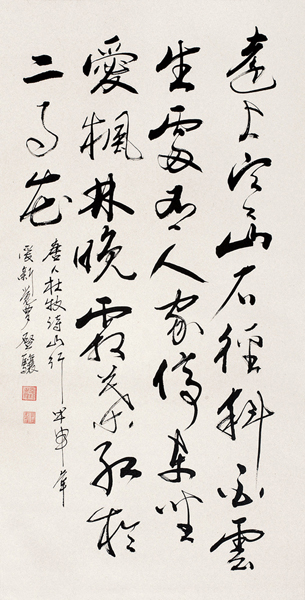 遠上寒山石徑斜白雲
生處有人家停車坐
愛楓林晚霜葉紅於
二月花
唐人杜牧詩山行甲申年
愛新覺羅啓驤